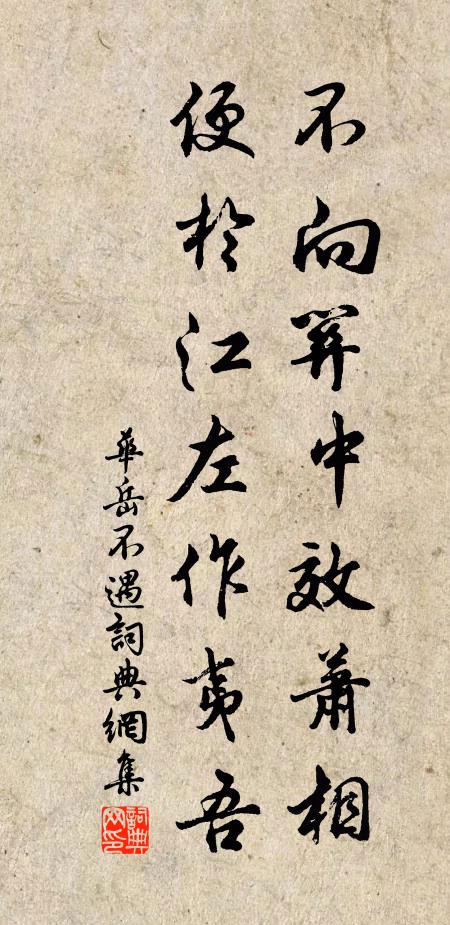 不向關中效蕭相
便於江左作夷吾
華岳不遇詞典網集
詞典網印